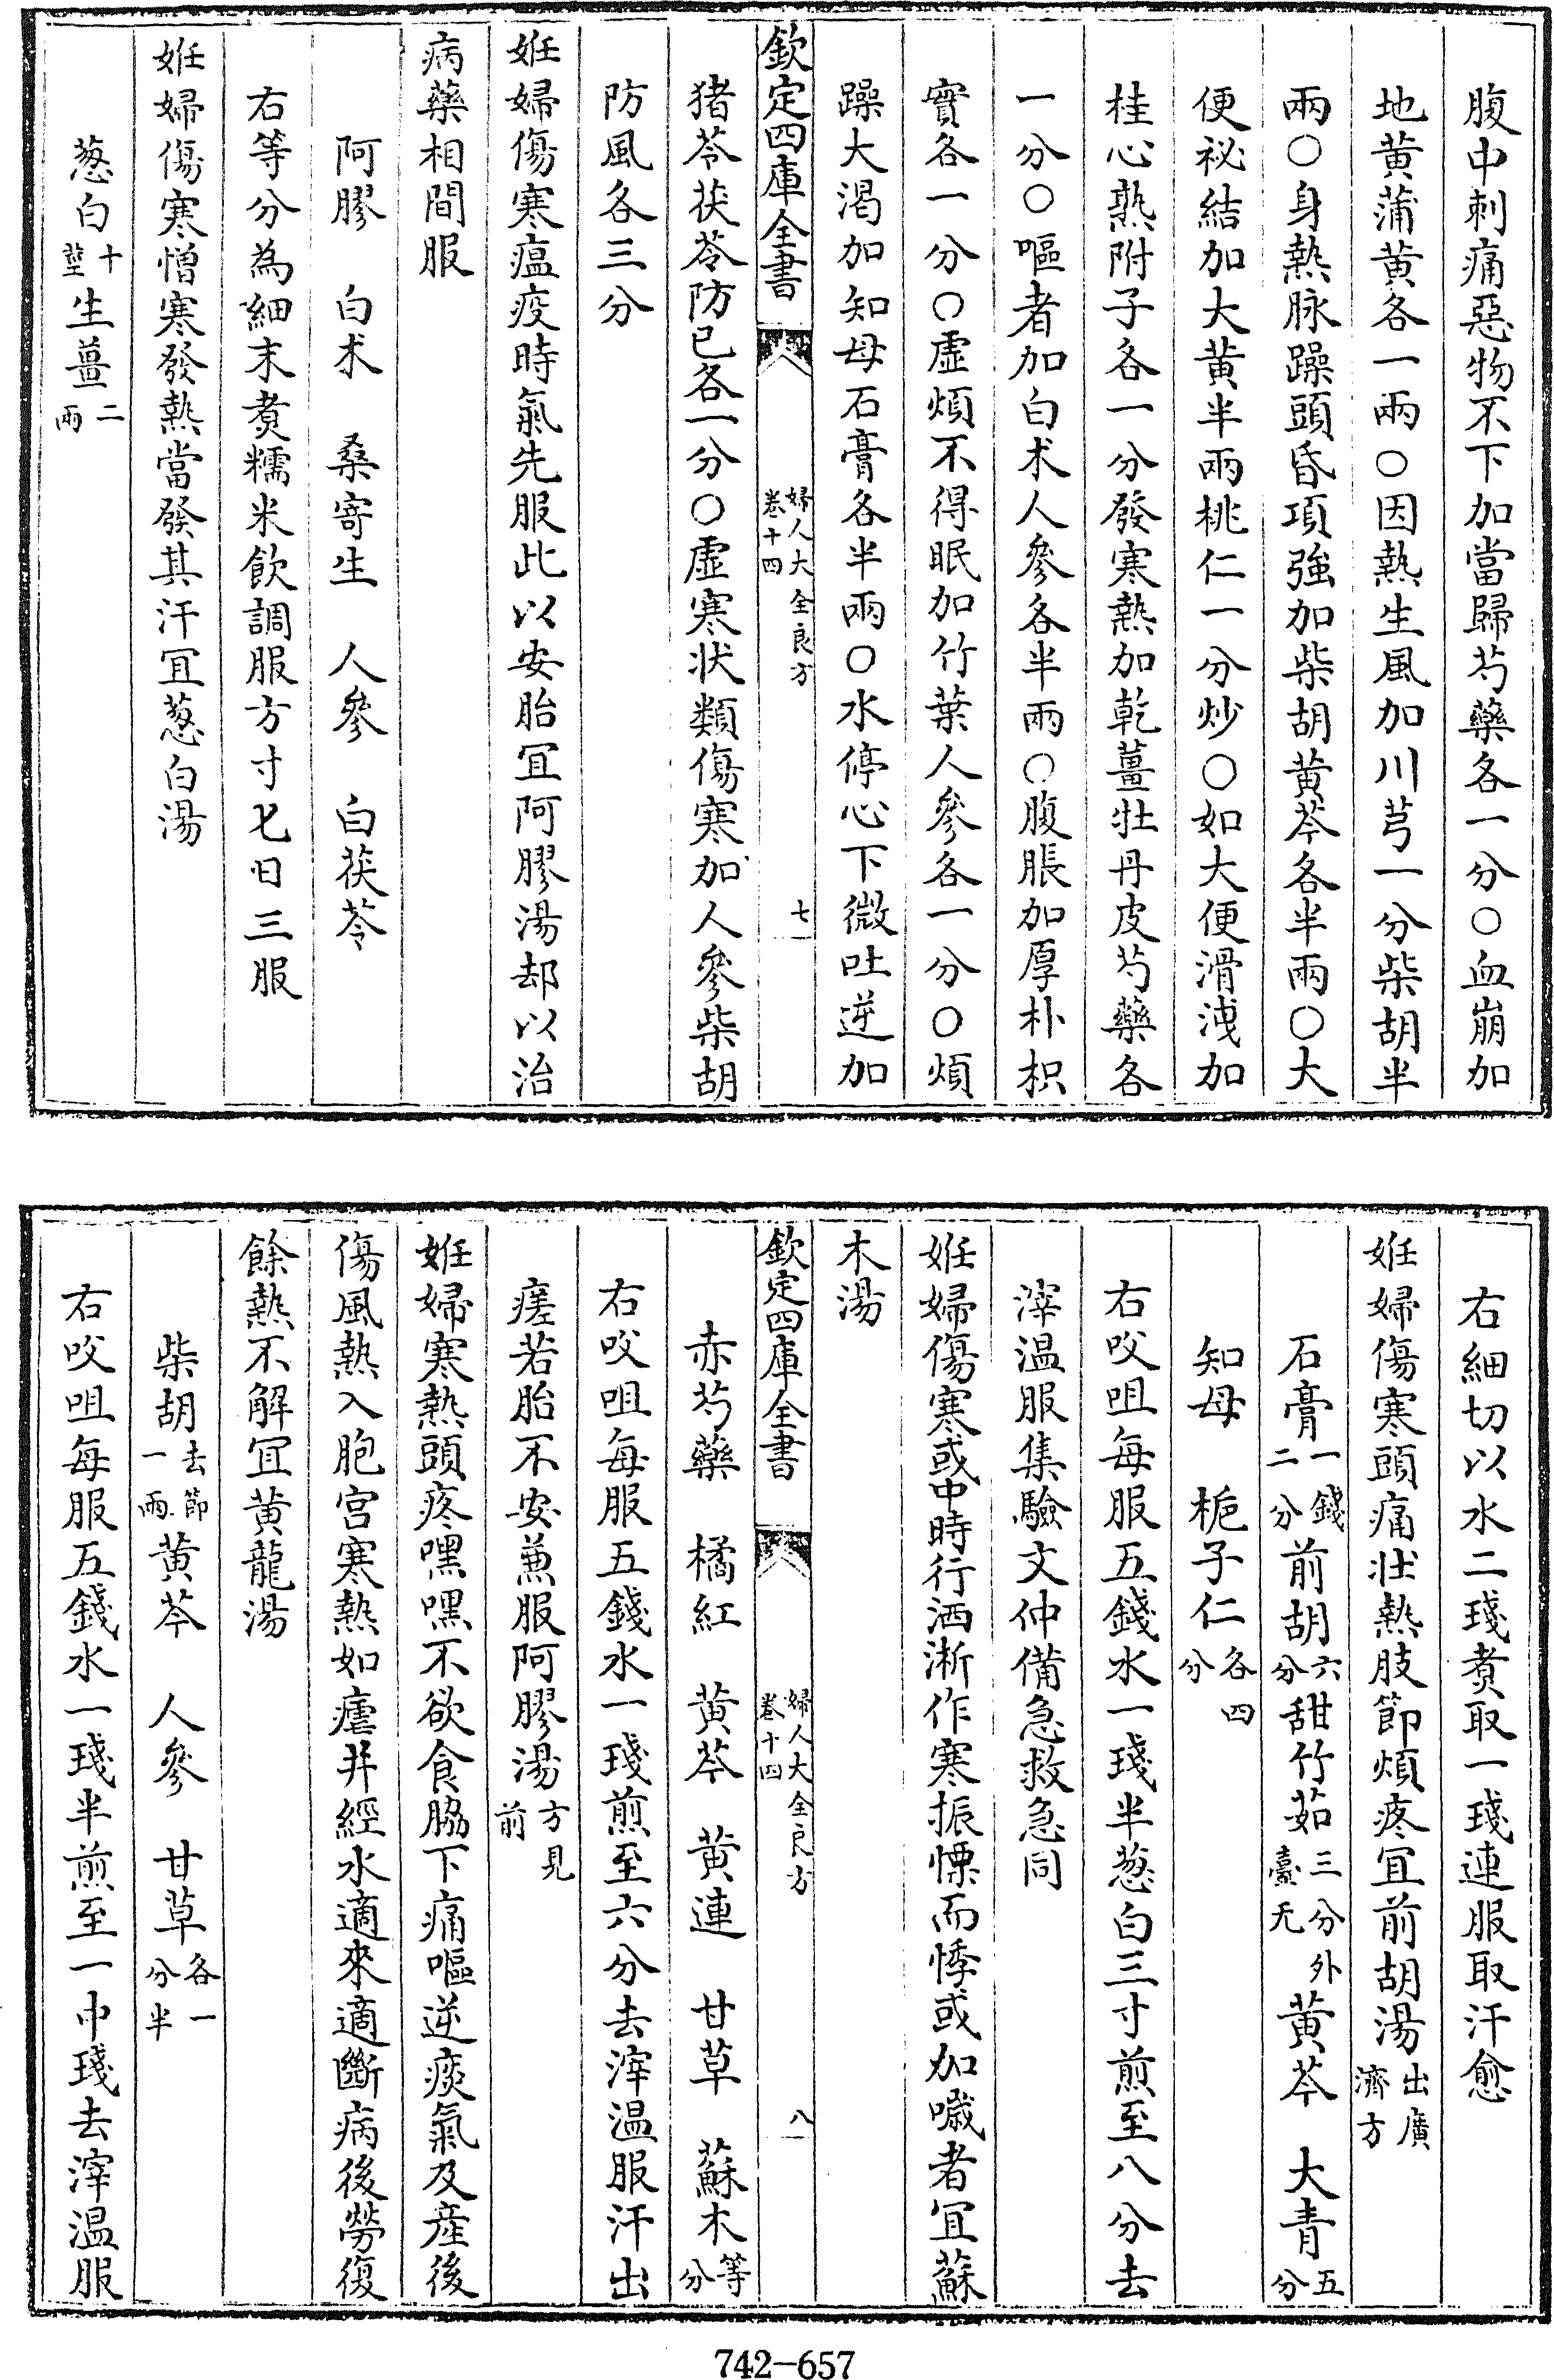 腹中刺痛惡物不下加當歸芍藥各一分○血崩加
地黄蒲黄各一兩○因熱生風加川芎一分柴胡半
兩○身熱脉躁頭昏項強加柴胡黄芩各半兩○大
便祕結加大黄半兩桃仁一分炒○如大便滑洩加
桂心熟附子各一分發寒熱加乾薑牡丹皮芍藥各
一分○嘔者加白术人參各半兩○腹脹加厚朴枳
實各一分○虛煩不得眠加竹葉人參各一分○煩
躁大渴加知母石膏各半兩○水停心下微吐逆加
欽定四庫全書 婦人大全良方卷十四 七
猪苓茯苓防已各一分○虛寒状類傷寒加人參柴胡
防風各三分
姙婦傷寒瘟疫時氣先服此以安胎冝阿膠湯却以治
病藥相間服
阿膠 白术 桑寄生 人參 白茯苓
右等分為細末煑糯米飲調服方寸匕日三服
姙婦傷寒憎寒發熱當發其汗冝葱白湯
葱白十莖生薑二兩
右細切以水二琖煑取一琖連服取汗愈
姙婦傷寒頭痛壯熱肢節煩疼冝前胡湯出廣濟方
石膏一錢二分前胡六分甜竹茹三分外臺无黄芩 大青五分
知母 梔子仁各四分
右㕮咀每服五錢水一琖半葱白三寸煎至八分去
滓温服集驗文仲備急救急同
姙婦傷寒或中時行洒淅作寒振慄而悸或加噦者冝蘇
木湯
欽定四庫全書 婦人大全良方卷十四 八
赤芍藥 橘紅 黄芩 黄連 甘草 蘇木等分
右㕮咀每服五錢水一琖煎至六分去滓温服汗出
瘥若胎不安兼服阿膠湯方見前
姙婦寒熱頭疼嘿嘿不欲食脇下痛嘔逆痰氣及産後
傷風熱入胞宫寒熱如瘧并經水適來適斷病後勞復
餘熱不解冝黄龍湯
柴胡去節一兩黄芩 人參 甘草各一分半
右㕮咀每服五錢水一琖半煎至一中琖去滓温服
742-657